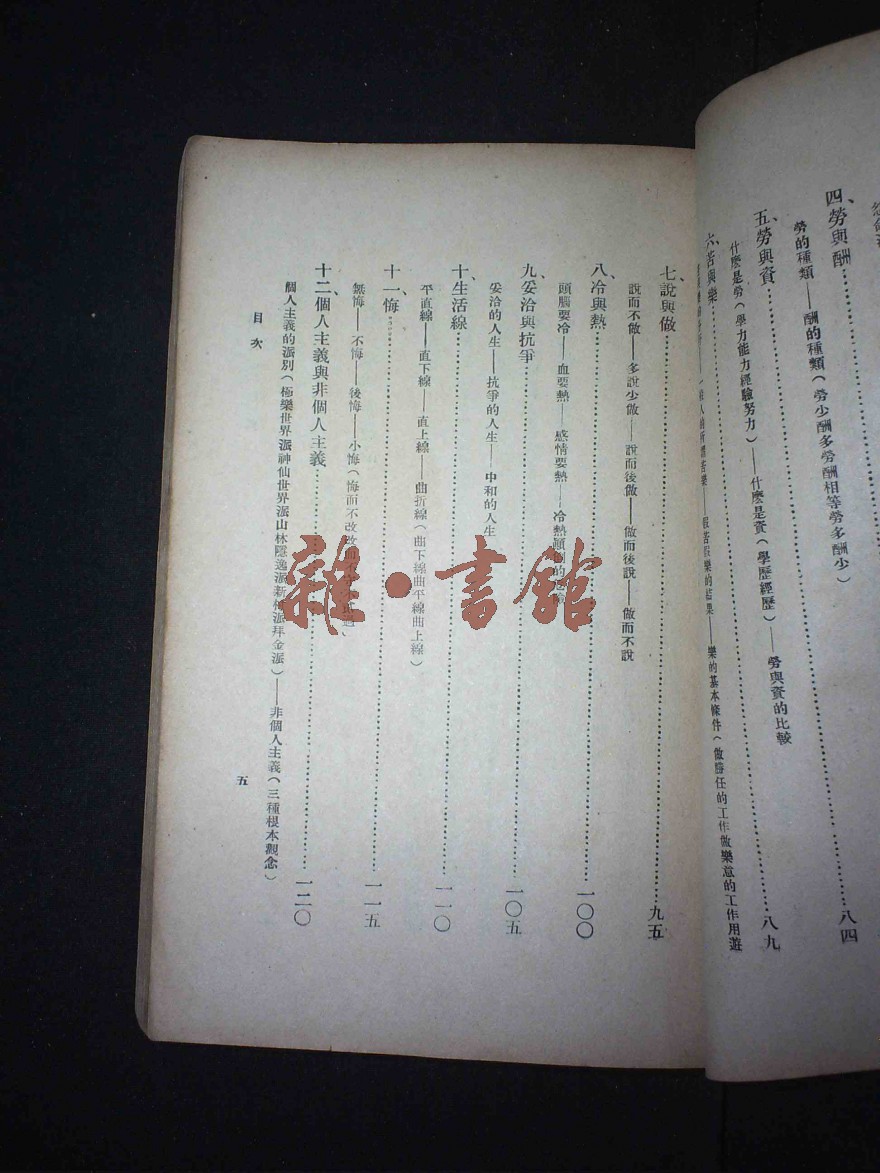 四、勞與酬……八四
勞的種類——酬的種類(勞少酬多勞酬相等勞多酬少)
五、勞與資……八九
什麽是勞(學力能力經驗努力)——什麽是資(學歷經歷)——勞與資的比較
六、苦與樂
樂的基本條件(做勝任的工作做樂意的工作用遊
七、說與做……九五
說而不做——多說少做——說而後做——做而後說——做而不說
八、冷與熱……一〇〇
頭腦要冷——血要熱——感情要熱——冷熱顛倒的
九、妥洽與抗爭……一〇五
妥洽的人生——抗爭的人生——中和的人生
十、生活線……一一〇
平直線——直下線——直上線——曲折線(曲下線曲平線曲上線)
十一、悔……一一五
無悔——不悔——後悔——小悔(悔而不改改
十二、個人主義與非個人主義……一二〇
個人主義的派別(極樂世界派神仙世界派山林隱逸派新村派拜金派)——非個人主義(三種根本觀念)
目次
五
雜·書館